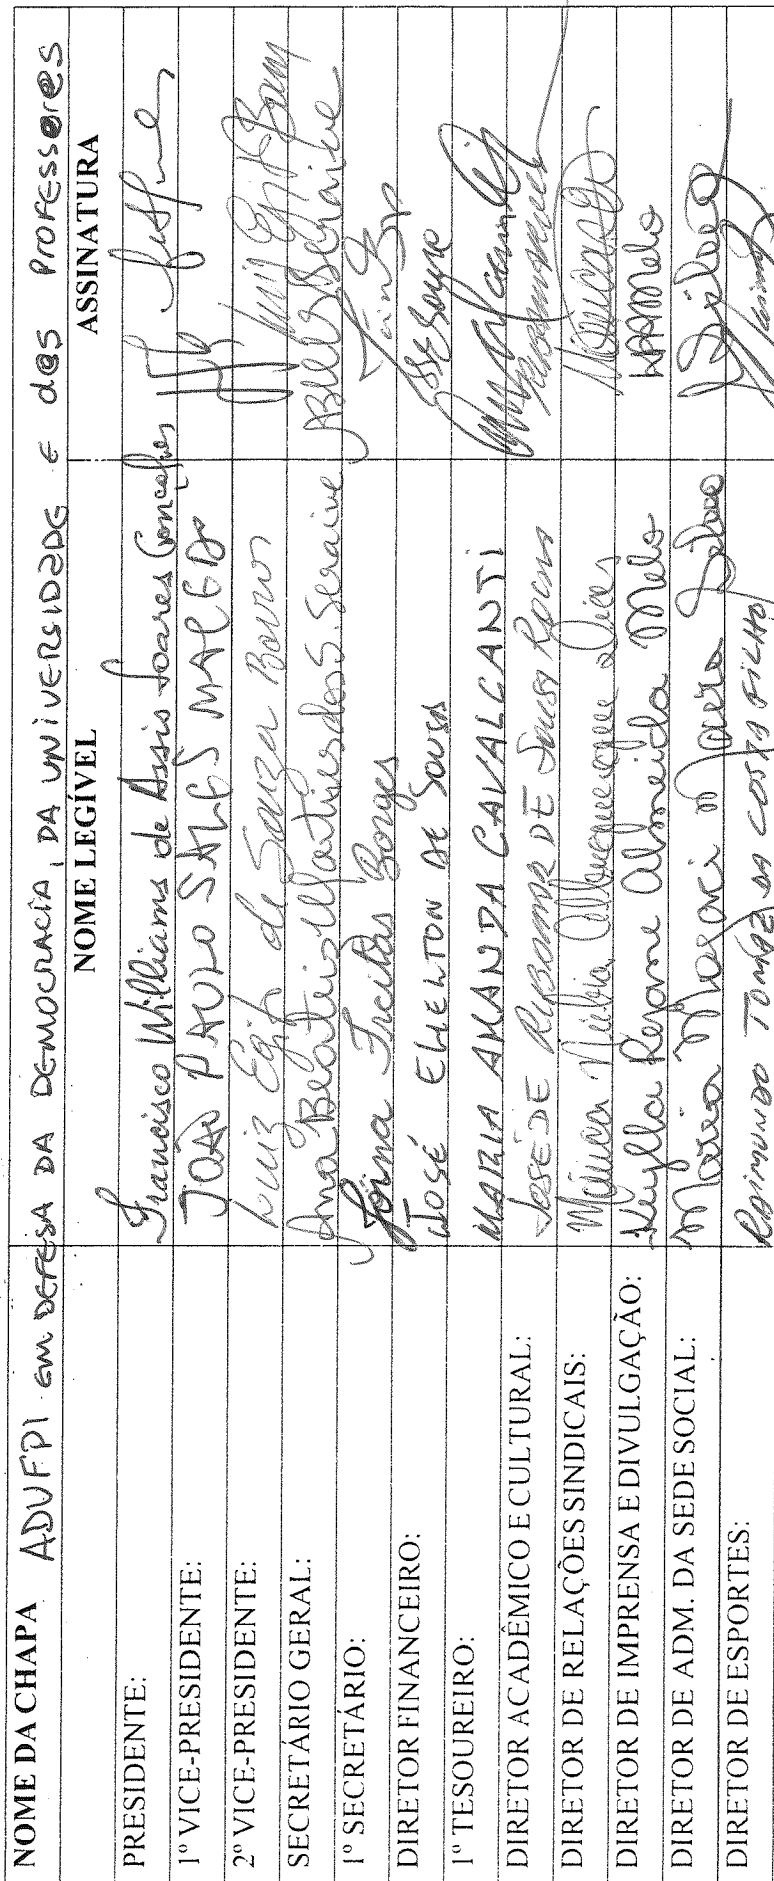 NOME DA CHAPA ADUFPI EM DEFESA DA DEMOCRACIA, DA UNIVERSIDADE E d@s PROFESSOR@S
NOME LEGÍVEL ASSINATURA
PRESIDENTE: Francisco Williams de Assis Soares Gonçalves
1º VICE-PRESIDENTE: JOÃO PAULO SALES MACEDO
2º VICE-PRESIDENTE: Luiz Egito de Souza Barros
SECRETÁRIO GERAL: Ana Beatriz Martins dos S. Seraine
1º SECRETÁRIO: Joina Freitas Borges
DIRETOR FINANCEIRO: José Elielton de Sousa José Sousa
1º TESOUREIRO: MARIA AMANDA CAVALCANTI
DIRETOR ACADÊMICO E CULTURAL: JOSÉ DE RIBAMAR DE Sousa Rocha
DIRETOR DE RELAÇÕES SINDICAIS: Núbia Albuquerque Dias
DIRETOR DE IMPRENSA E DIVULGAÇÃO: Keylla Rejane Almeida Melo KRAMelo
DIRETOR DE ADM. DA SEDE SOCIAL: Maria Majaci Moura da Silva
DIRETOR DE ESPORTES: RAIMUNDO TOMAZ DA COSTA FILHO